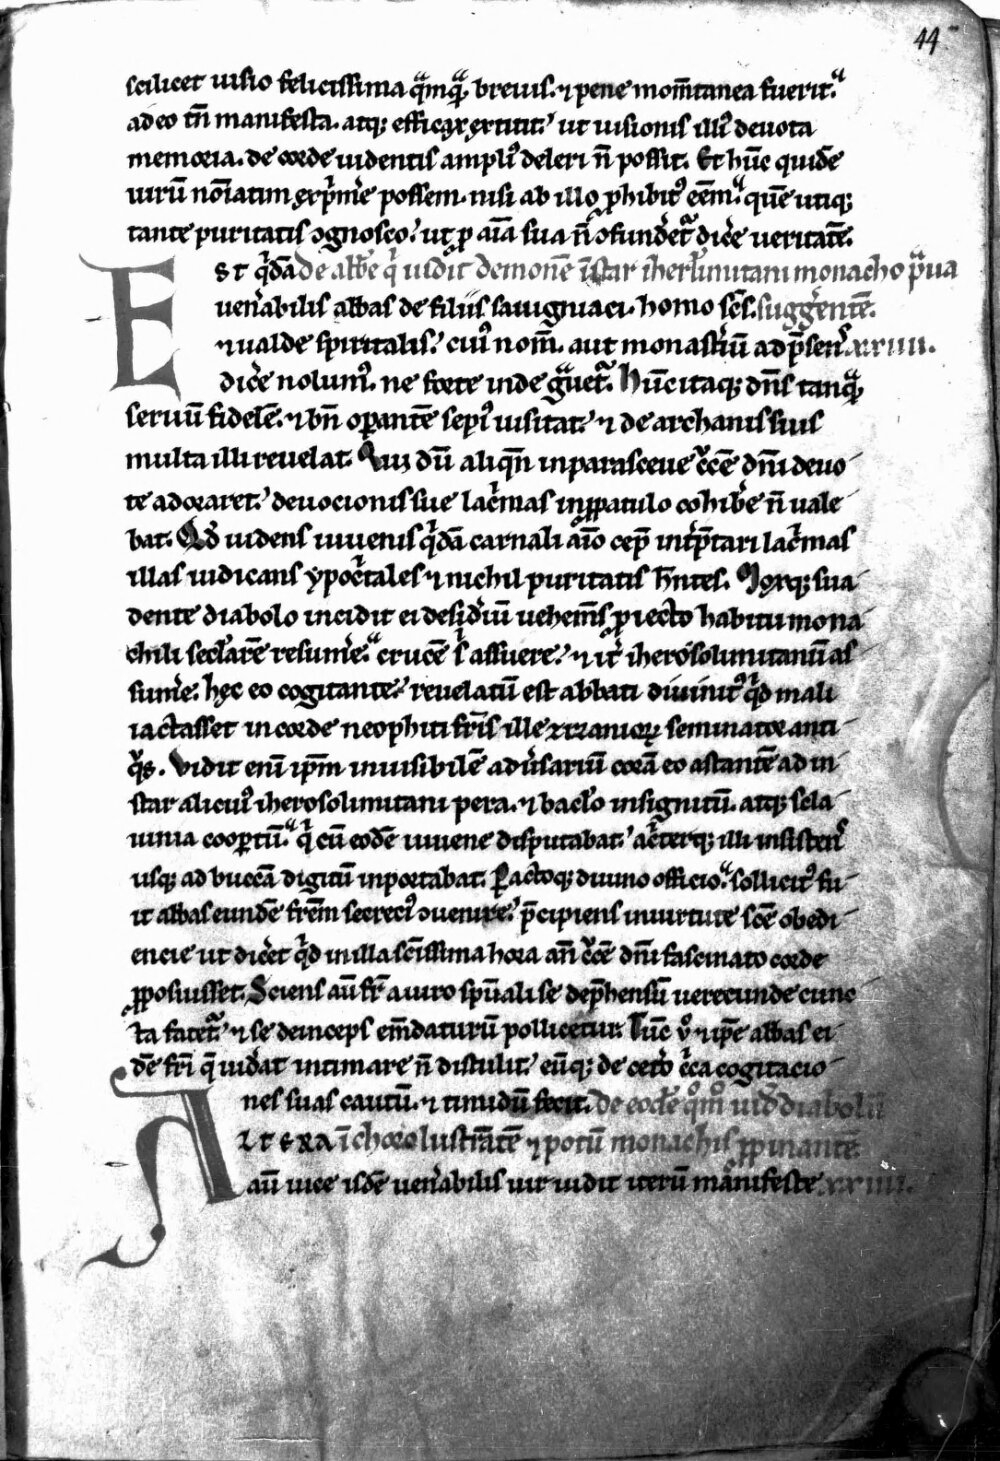 44
scilicet uisio felicissima q̃mq̃ breuis. ⁊ pene mom̃tanea fuerit.
adeo tñ manifesta. atq; efficax extitit. ut uisionis illiꝰ deuota
memoria. de corde uidentis ampliꝰ deleri ñ possit. Et hũc quidẽ
uirũ noĩatim exp̃mẽ possem. nisi ab illo ꝓhibitꝰ eẽm. quẽ utiq;
tante puritatis ꝯgnosco. ut ꝓ aĩa sua ñ ꝯfundẽt᷑ dicẽ ueritatẽ.
EST q̃dã de abb̃e q̃ uidit demonẽ ĩstar iherl̃imitani monacho p̃ua
uen̾abilis abbas de filiis sauigniaci. homo sc̃s. suggẽntẽ.
⁊ ualde spiritalis. cuiꝰ nom̃. aut monast̾iũ ad p̃sens̃ xxxiiii.
dic̾e nolumꝰ. ne forte inde g̃uet᷑. Hũc itaq; dñs tanq̃
seruũ fidelẽ. ⁊ bñ oꝑantẽ sepiꝰ uisitat. ⁊ de archanis suis
multa illi reuelat. Qui dũ aliqñ in parasceue c̃cẽ dñi deuo-
te adoraret. deuocionis sue lac̾mas in ꝓpatulo cohib̾e ñ uale-
bat. Qđ uidens iuuenis q̃dã carnali aĩo cep̃ int̾p̃tari lac̾mas
illas iudicans ypoc̾tales ⁊ nichil puritatis h̃ntes. Moxq; sua-
dente diabolo incidit ei desid̾iũ uehem̃s ꝓiecto habitu mona-
chili secl̃arẽ resum̾e. crucẽ s̾ assuere. ⁊ it̾ iherosolimitanũ as-
sum̾e. hęc eo cogitante. reuelatũ est abbati diuinitꝰ q̃d mali
iactasset in corde neophiti fr̃is ille zizaniorꝝ seminator anti-
q̃s. Vidit eni ip̃m inuisibilẽ adũsariũ corã eo astantẽ ad in-
star alicuiꝰ iherosolimitani pera. ⁊ bacl̃o insignitũ. atq; scla-
uinia cooꝑtũ. q̃ cũ eodẽ iuuene disputabat. ac̾terq; illi insistens̃
usq; ad buccã digitũ inportabat. ꝑactoq; diuino officio. sollicitꝰ fu-
it abbas eundẽ fr̃em secreciꝰ ꝯuenire. p̃cipiens in uirtute sc̃e obedi-
encie ut dic̾et q̃d in illa sc̃issima hora añ c̾cẽ dñi fascinato corde
ꝓposuisset. Sciens aũ fr̃ a uiro sp̃uali se dep̃hensũ uerecunde cunc-
ta fatet᷑. ⁊ se deinceps em̃daturũ pollicetur. Tũc ṽ ⁊ ip̃e abbas ei-
dẽ fr̃i q̃ uid̾at intimare ñ distulit. eũq; de cet̾o c̾ca cogitacio-
nes suas cautũ. ⁊ timidũ fecit. de eodẽ q̃m̃ uid̾ diabolũ
ALTERA ĩ choro lustrãtẽ ⁊ potũ monachis ꝓpinantẽ.
aũ uice isdẽ uen̾abilis uir uidit iterũ manifeste xxxiiii.